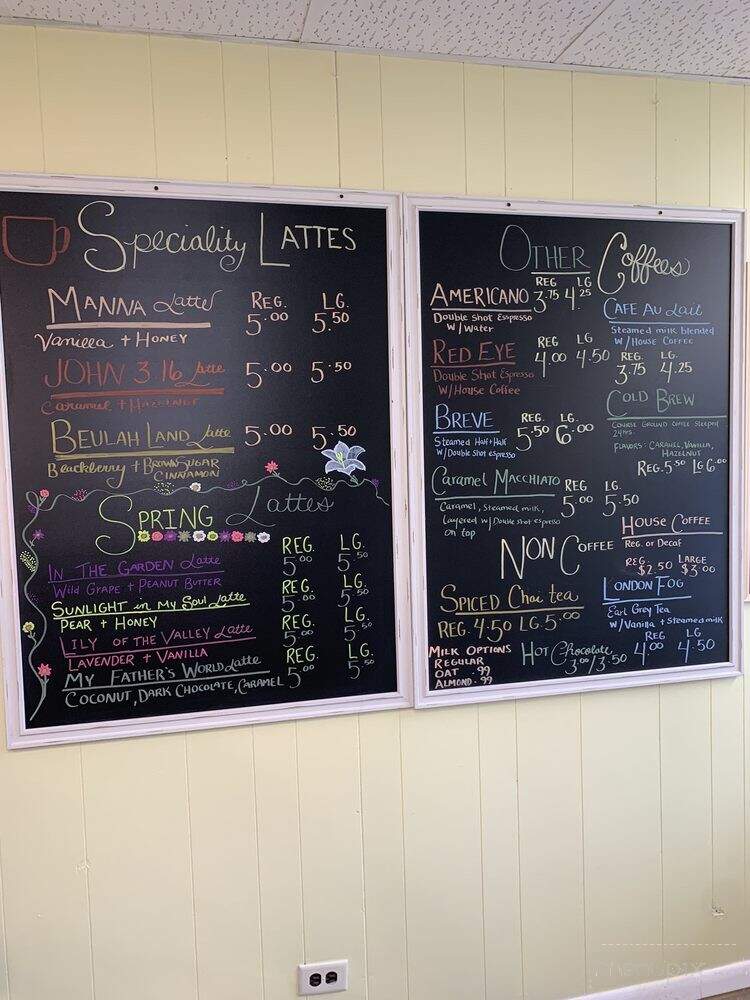 Speciality LATTES
MANNA Latte REG. LG.
5.00 5.50
Vanilla + HONEY
JOHN 3:16 Latte 5.00 5.50
CARAMEL + HAZELNUT
BEULAH LAND Latte 5.00 5.50
Blackberry + BROWN SUGAR
CINNAMON
SPRING Lattes
REG. LG.
IN THE GARDEN Latte 5.00 5.50
Wild Grape + PEANUT BUTTER
REG. LG.
SUNLIGHT in My Soul Latte 5.00 5.50
PEAR + HONEY
REG. LG.
LILY OF THE VALLEY Latte 5.00 5.50
LAVENDER + VANILLA
REG. LG.
MY FATHER'S WORLD Latte 5.00 5.50
COCONUT, DARK CHOCOLATE, CARAMEL
OTHER Coffees
REG LG
AMERICANO 3.75 4.25
Double Shot Espresso
W/Water
RED EYE REG LG
4.00 4.50
Double Shot Espresso
W/House Coffee
BREVE REG. LG.
5.50 6.00
Steamed Half+Half
W/Double shot espresso
Caramel MACCHIATO REG LG.
5.00 5.50
Caramel, Steamed milk,
Layered w/Double shot espresso
on top
CAFE AU Lait
Steamed milk blended
W/HOUSE COFFEE
REG. LG.
3.75 4.25
COLD BREW
COURSE GROUND COFFEE Steeped
24 HRS.
FLAVORS: CARAMEL, VANILLA,
HAZELNUT
REG. 5.50 LG 6.00
HOUSE COFFEE
REG. or DECAF
REG. LARGE
$2.50 $3.00
NON COFFEE
SPICED Chai tea
REG. 4.50 LG. 5.00
LONDON FOG
Earl Grey Tea
W/Vanilla + Steamed milk
REG LG
4.00 4.50
HOT Chocolate
3.00/3.50
MILK OPTIONS
REGULAR
OAT .99
ALMOND .99